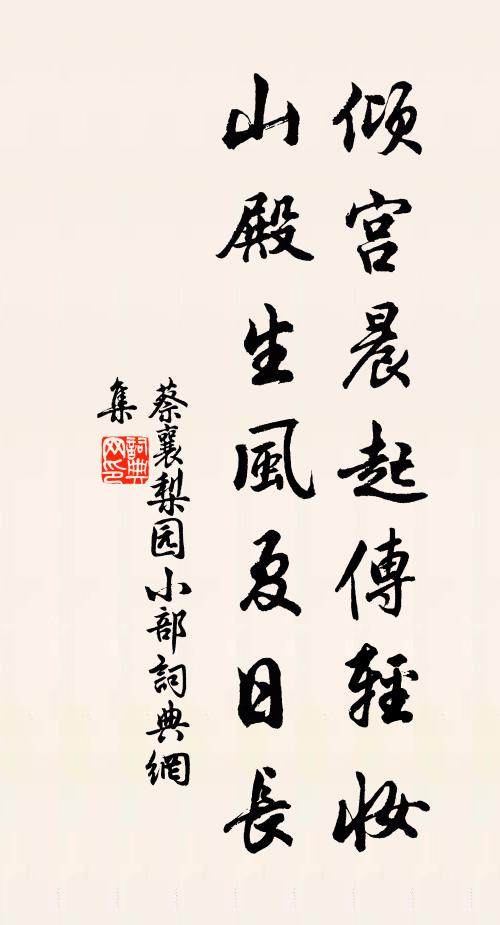 倾宫晨起傳輕妝
山殿生風夏日長
蔡襄梨园小部詞典網
集
詞典网印